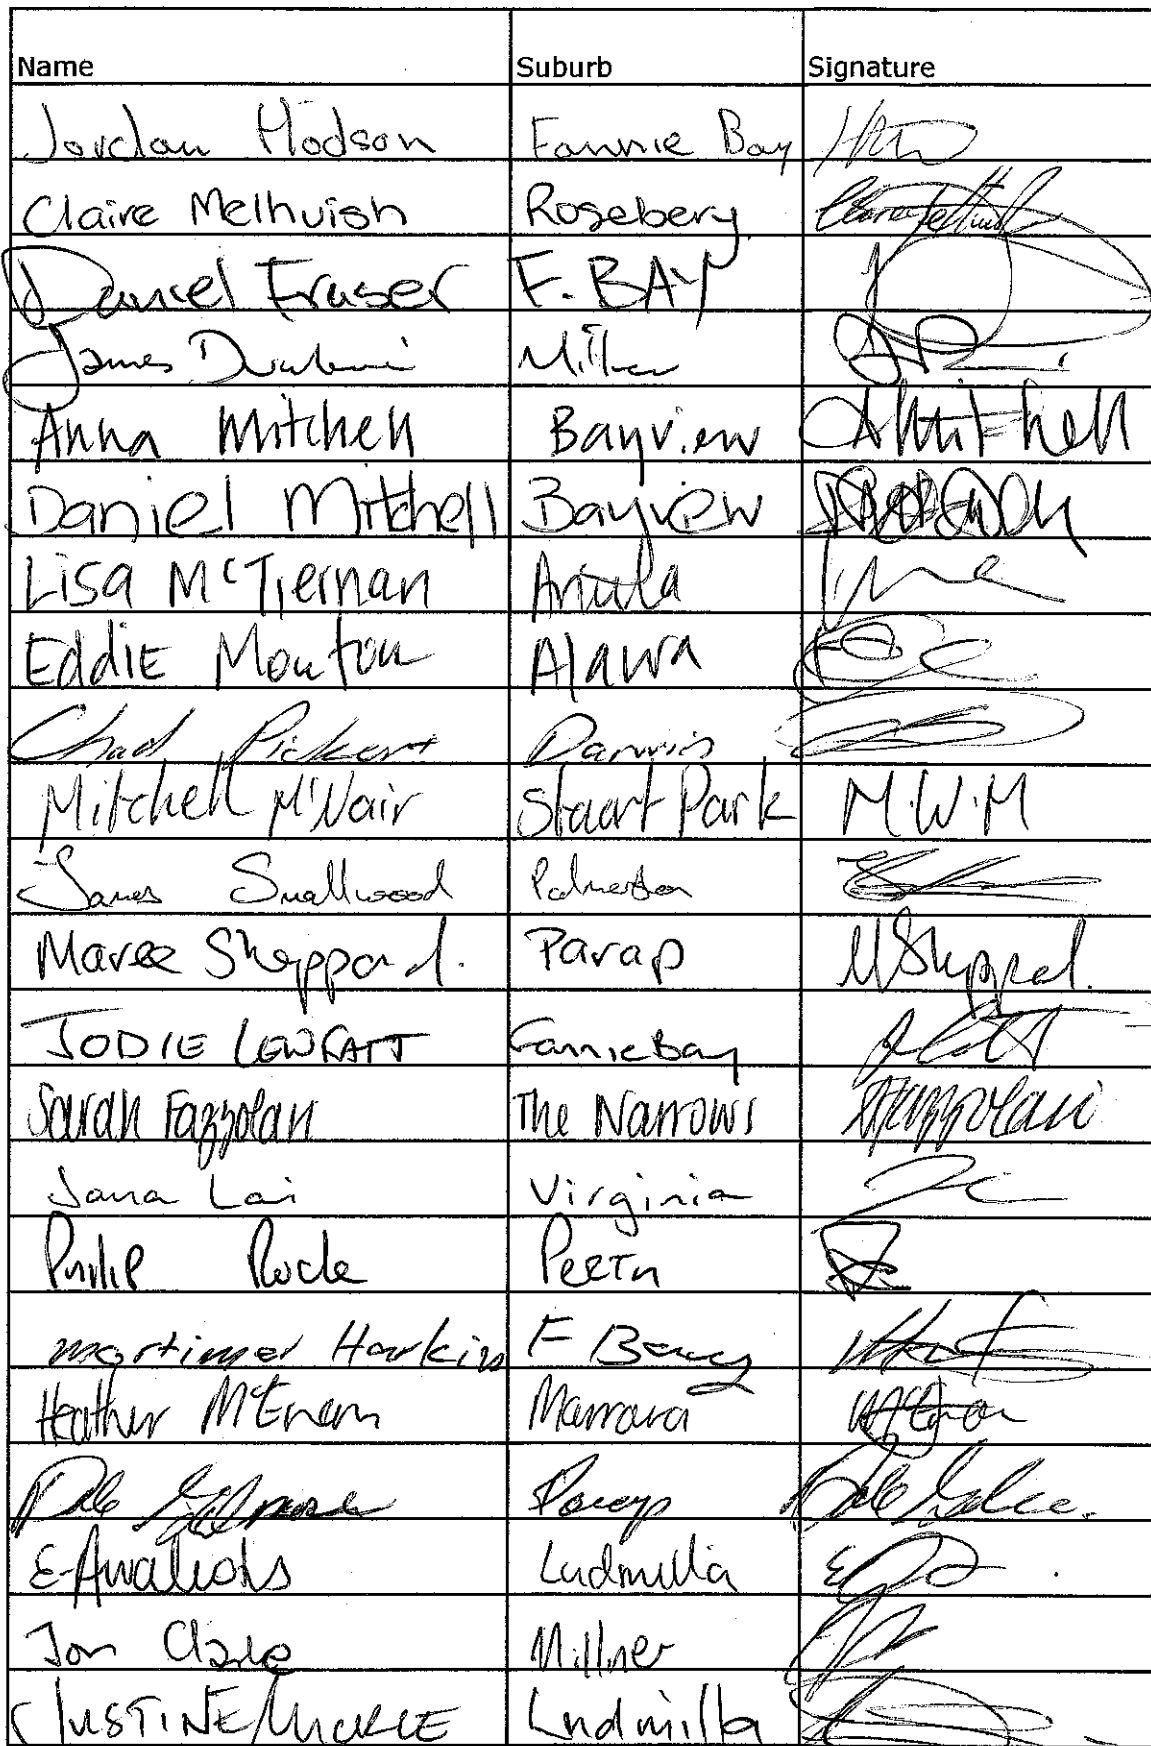 Name Suburb Signature
Jordan Hodson Fannie Bay
Claire Melhuish Rosebery
Daniel Fraser F. BAY
James
Anna Mitchell Bayview AMitchell
Daniel Mitchell Bayview
Lisa McTiernan Anula
Eddie Mouton Alawa
Chad Pickert Darwin
Mitchell McNair Stuart Park M.W.M
James Smallwood Palmerston
Maree Sheppard. Parap MSheppard.
JODIE Fannie Bay
Sarah Fazzolari The Narrows SFazzolari
Jana Lai Virginia
Philip Perth
Mortimer Harkin F Bay
Heather Marrara
Dale Parap Dale
Ludmilla
Jon Clarke Millner
JUSTINE Ludmilla